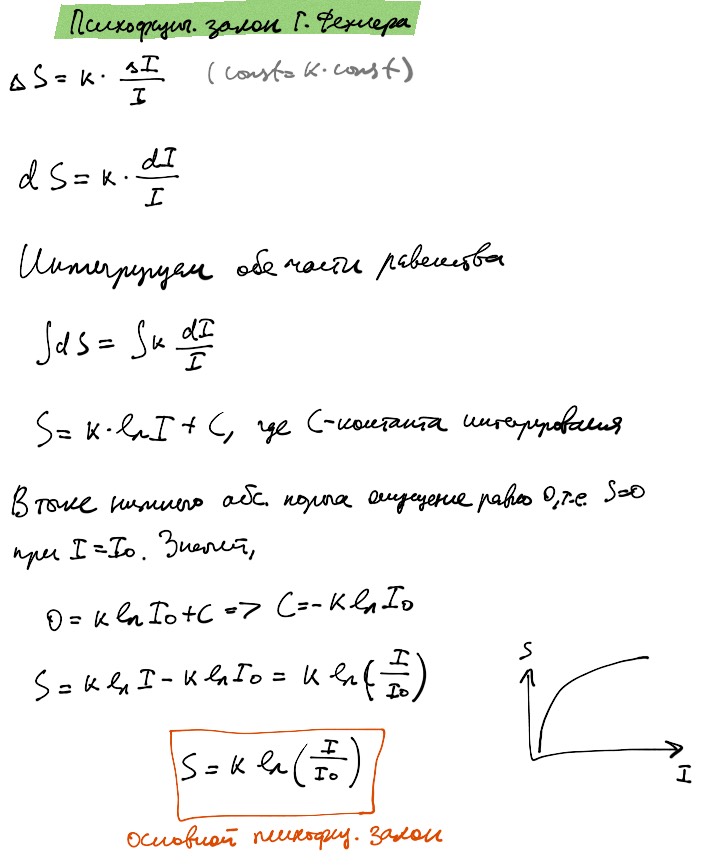 Психофизич. закон Г. Фехнера
ΔS = к · ΔI/I (const = к · const)
dS = к · dI/I
Интегрируем обе части равенства
∫dS = ∫к dI/I
S = к · ln I + C, где C-константа интегрирования
В точке нижнего абс. порога ощущение равно 0, т.е. S=0
при I = I₀. Значит,
0 = к ln I₀ + C => C = -к ln I₀
S = к ln I - к ln I₀ = к ln(I/I₀)
S
I
S = к ln(I/I₀)
основной психофиз. закон